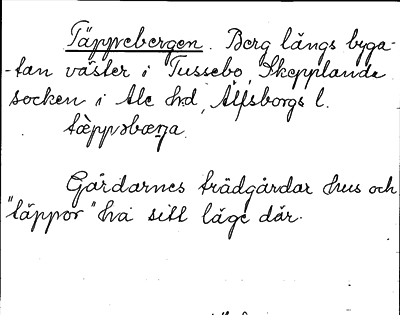 Täppebergen. Berg längs byga-
-tan väster i Tussebo, Skepplanda
socken i Ale hd, Älfsborgs l.
tæppəbærja.
Gårdarnes trädgårdar hus och
"täppor" ha sitt läge där.